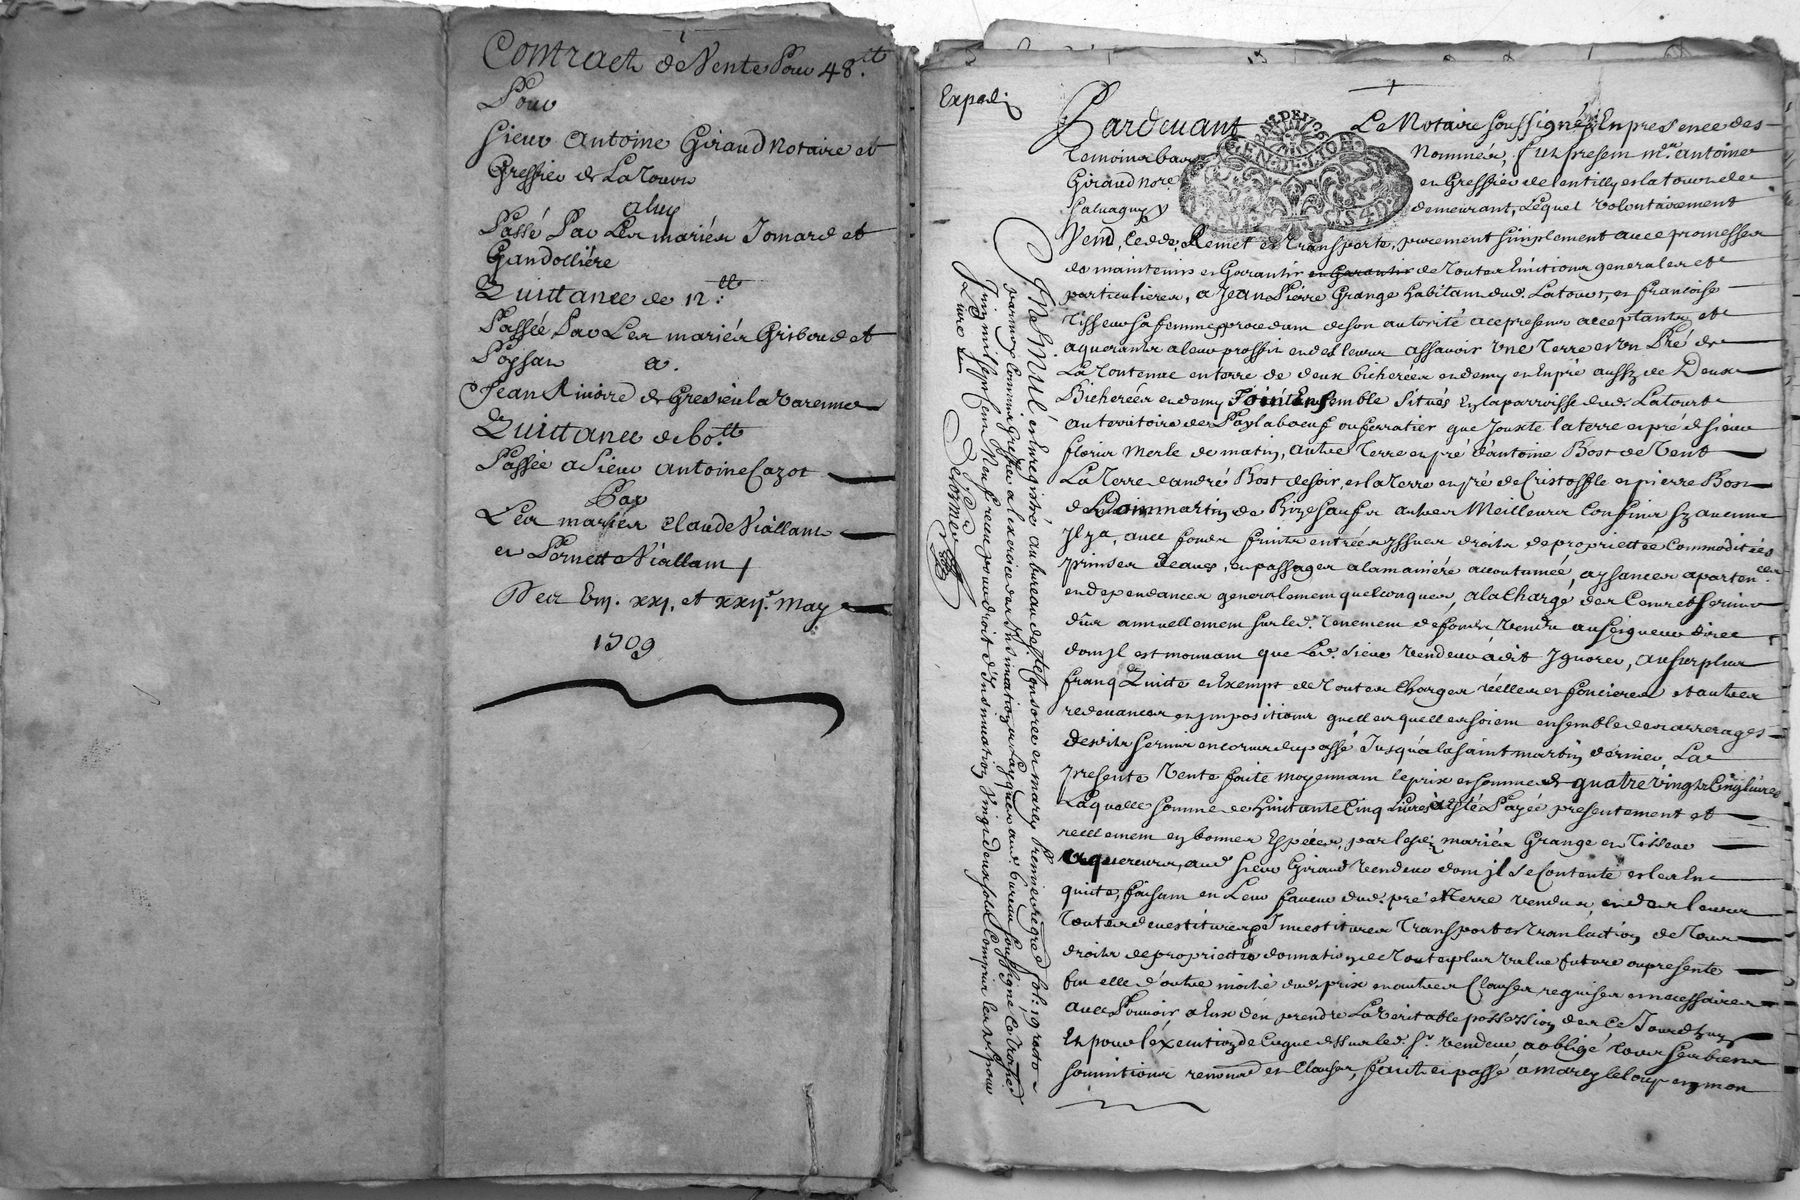 Contract de Vente Pour 48.tt
Pour
Sieur Antoine Giraud Notaire et
Greffier de La Tour
a luy
Passé Par Les mariés Jomard et
Gandollière
Quittance de 12.tt
Passée Par Les mariés Griboud et
a.
Jean Riviore de Gresieu la varenne
Quittance de 60.tt
Passée a Sieur Antoine Cazot
Par
Les mariés Claude Viallam
et Pernett Viallam
Des Viij. xxj. et xxij.e May
1709
Exped.
Pardevant Le Notaire soussigné, En presence des
temoins bas Nommés, fut present m.re antoine
Giraud no.re et Greffier de Lentilly et la tour de
Salvagny y demeurant, Lequel volontairement
Vend, cedde, Remet et Transporte, purement simplement avec promesse
de maintenir et Garantir en Garantir de toutes Evictions generales et
particulieres, a Jean Pierre Grange habitant dud. Latour, et francoise
Tisseur sa femme procedant de son autorité a ce present acceptants et
aquerants a leur proffit et des leurs assavoir Une Terre et Un Pré de
La Contenue en terre de deux bicherées et demy et En pré aussy de Deux
Bicherées et demy Joint Ensemble Situés En la parroisse dud. Latour
au territoire de Paylaboeuf ou ferratier que Jouxte la terre et pré de sieur
florin Merle de matin, autre Terre et pré d'antoine Bost de Vent
La Terre d'andré Bost de soir, et la terre et pré de Cristoffle et pierre Bost
de Dommartin de Bize sauf ses autres Meilleurs Confins sy aucuns
Il y a, avec fonds fruits entrées yssues droits de proprietté Commodités
prinses d'eaux, et passages a la maniére accoutumée, aysances aparten.ces
et dependances generalement quelconques, a la Charge des Cens et servis
dûs annuellement sur led. tenement de fonds vendu au seigneur direct
dont Il est mouvant que Led. sieur vendeur a dit Ignorer, au surplus
franq Quitte et Exempt de toutes Charges réelles et foncieres et autres
redevances et Impositions quelles quelles soient ensemble des arrerages
desdits servis encourus du passé Jusqu'a la saint martin dernier La
presente Vente faite moyennant le prix et somme de quatre vingt Cinq livres
Laquelle somme de huitante Cinq Livres a Esté Payée presentement et
reellement en bonnes Espéces, par lesd. mariés Grange et Tisseur
aquereurs, aud. sieur Giraud vendeur dont Il se Contente et les En
quitte, faisant en Leur faveur dud. pré et terre vendus, et des leurs
toutes devestitures Investitures Transport et translaction de tous
droits de proprietté donnation de toute plus value future ou presente
fut elle d'outre moitié dud. prix et autres Clauses requises et necessaires
avec Pouvoir a Eux d'en prendre La veritable possession des Ce Jourd'huy
Et pour l'éxecution de Ce que dessus led. S.r vendeur a obligé tous ses biens
soumitions renonc.on et Clauses, fait et passé a marcy le loup en mon
Insinué et Enregistré au bureau de S.te Consorce et marcy Premier regre fol: 19 recto
par moy Commis Greffier a l'exercice des Insinuations et Layques aud. bureau soussigné Ce troisieme
Juin mil sept cent Neuf receu pour droit d'Insinuation vingt deux sols Compris les 2s pour
Livre
Delorme
GEN. DE LION